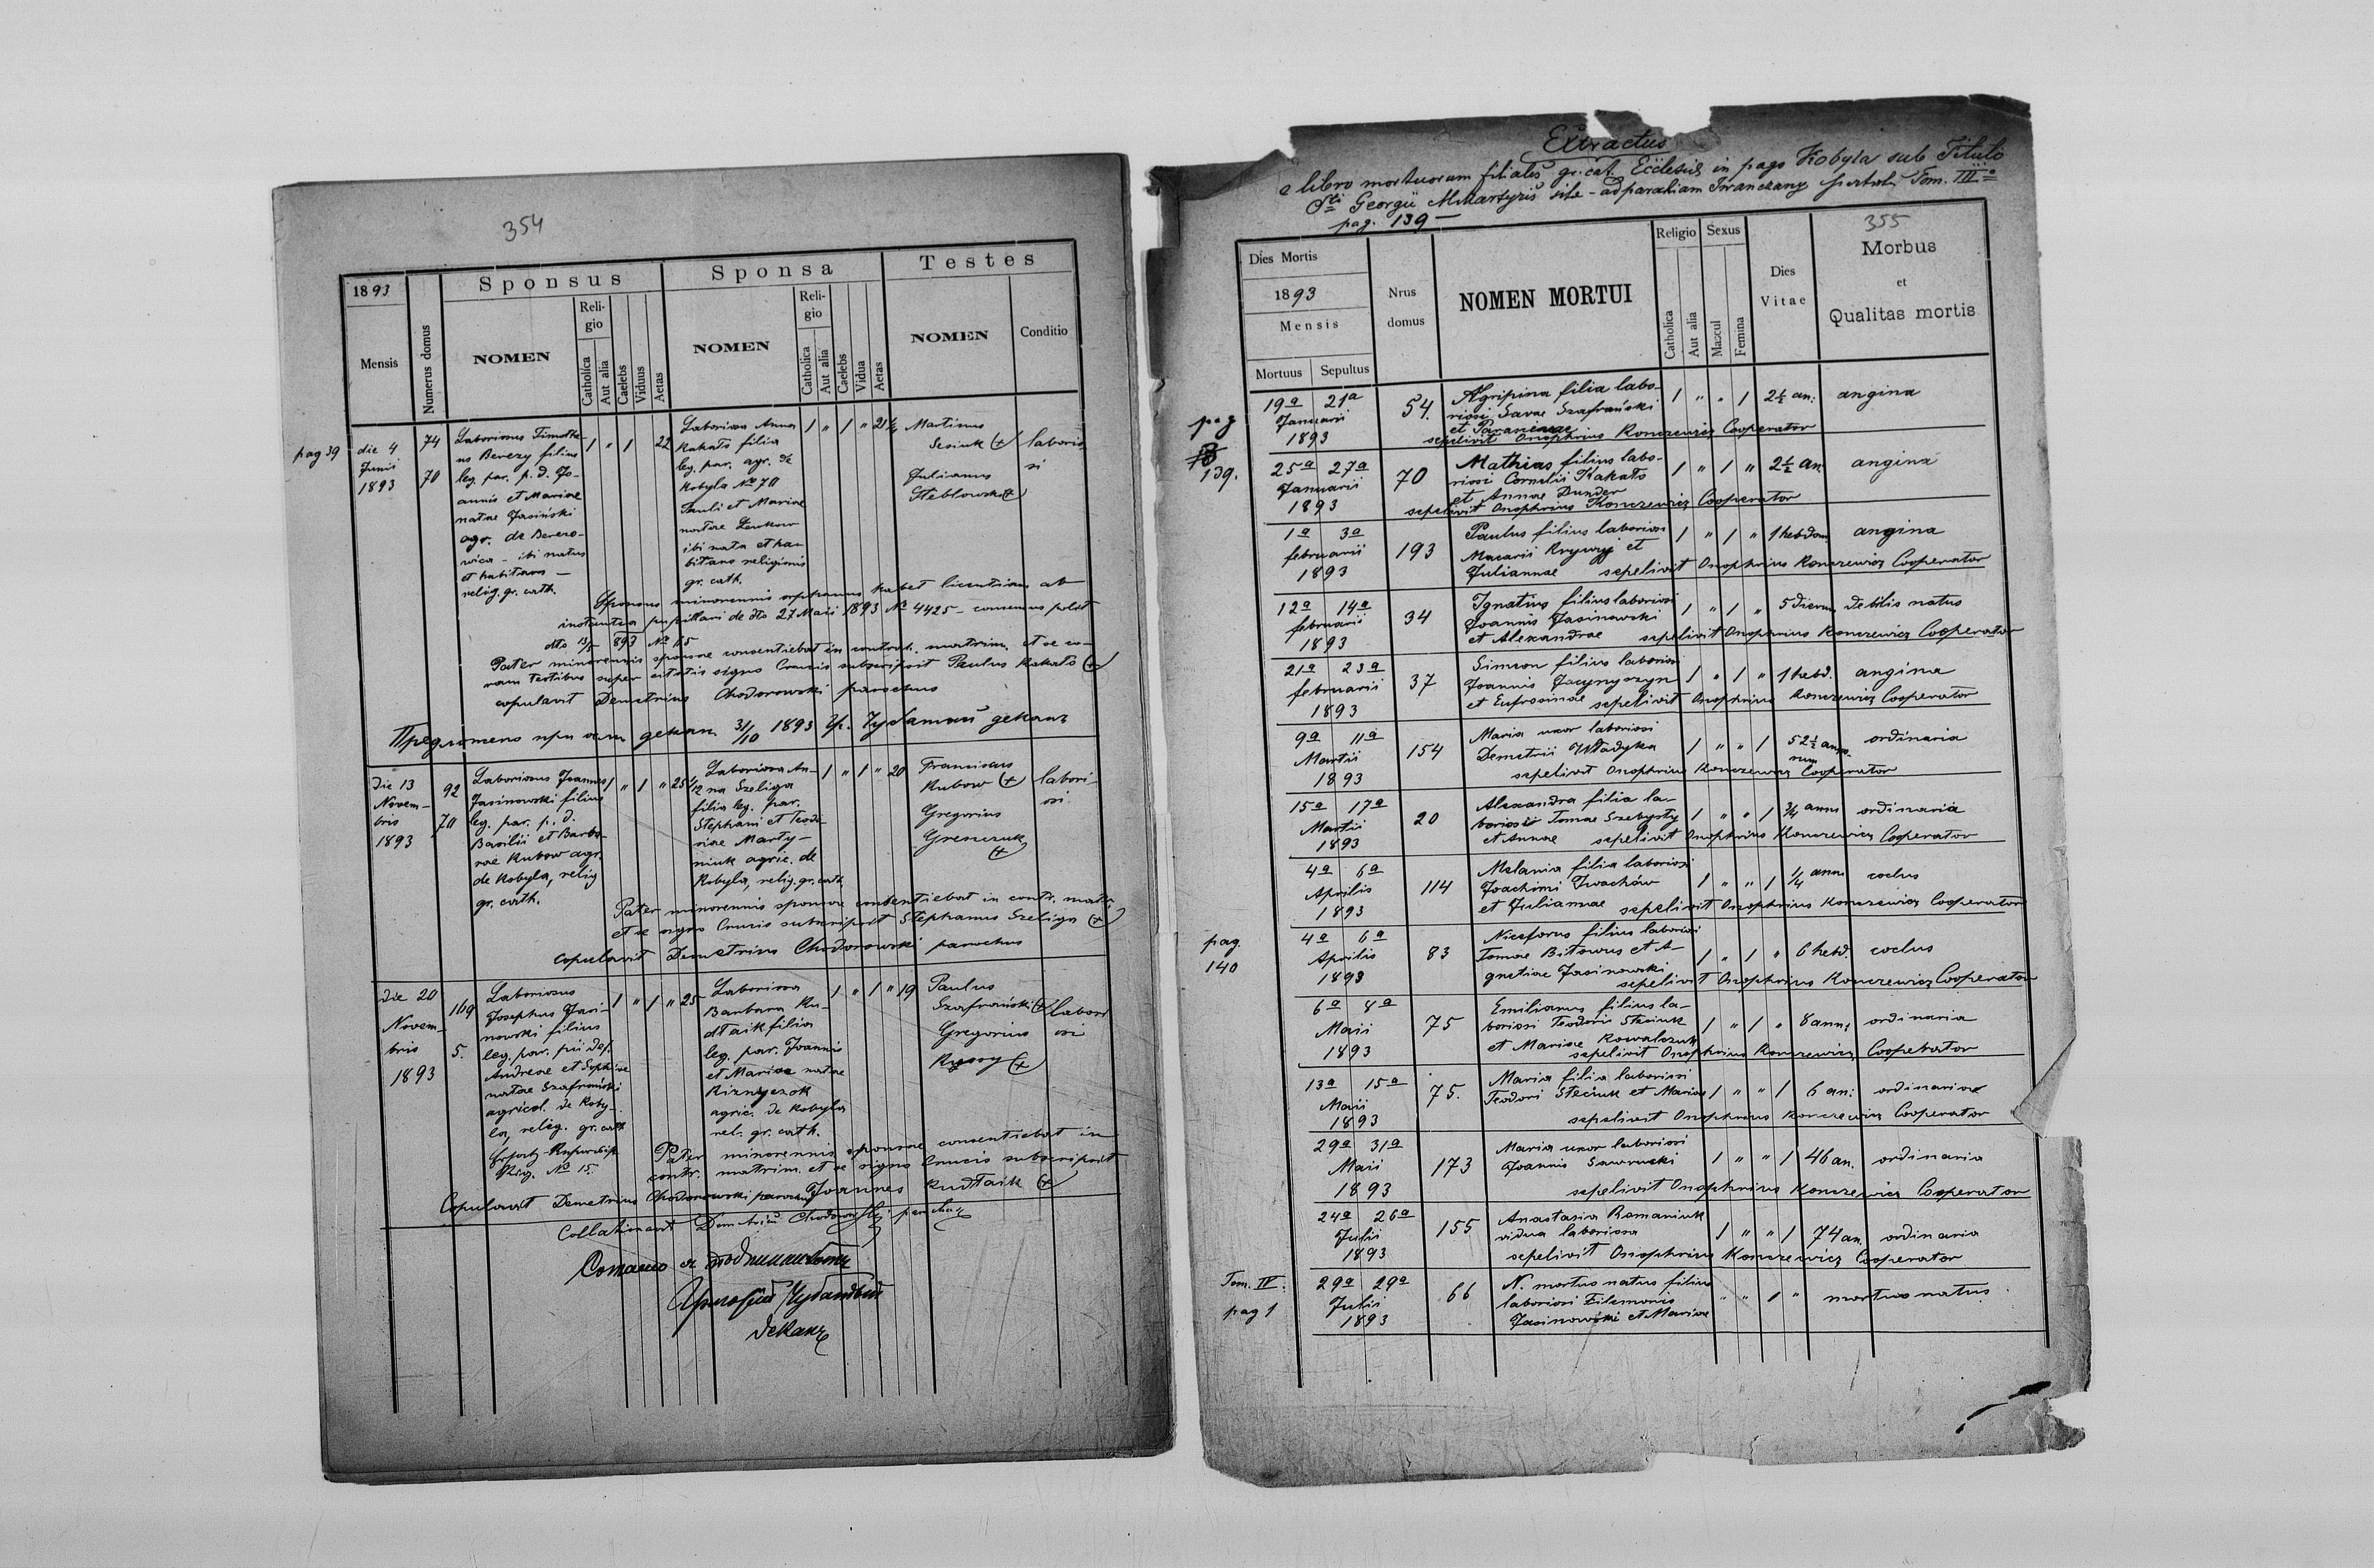 354
1893
Mensis
Numerus domus
Sponsus
NOMEN
Reli-
gio
Catholica
Aut alia
Caelebs
Viduus
Aetas
Sponsa
NOMEN
Reli-
gio
Catholica
Aut alia
Caelebs
Vidua
Aetas
Testes
NOMEN
Conditio
pag 39
die 4
Junii
1893
74
70
Laboriosus Timothe-
us Berezy filius
leg. par. p. d. Jo-
annis et Mariae
natae Jasiński
agr. de Berezo-
wica - ibi natus
et habitans -
relig. gr. cath.
1 " 1 22
Laboriosa Anna
Kakato filia
leg. par. agr. de
Kobyla № 70
Pauli et Mariae
natae
ibi nata et ha-
bitans religionis
gr. cath.
1 " 1 " 21
Martinus
Sesiuk (+)
Julianus
Steblowski (+)
laborio
si
Sponsus minorennis orphanus habet licentiam ab
instantia pupillari de dto 27 Maii 1893 № 4425 - consensus polit
dto 893 №
Pater minorennis sponsae consentiebat in contrah. matrim. et se co-
ram testibus super citatis signo Crucis subscripsit Paulus Kakato (+)
copulavit Demetrius Chodorowski parochus
Предложено при декан 31/10 1893 Чубатый деканъ
Die 13
Novem-
bris
1893
92
70
Laboriosus Joannes
Jasinowski filius
leg. par. p. d.
Basilii et Barba-
rae Kubow agr.
de Kobyla, relig
gr. cath.
1 " 1 " 25
Laboriosa An-
na Szeliga
filia leg. par.
Stephani et Teodo-
siae Marty-
niuk agric. de
Kobyla, relig. gr. cath.
1 " 1 " 20
Franciscus
Kubow (+)
Gregorius
Grenczuk
(+)
labori-
osi
Pater minorennis sponsae consentiebat in contr. matr.
et se signo Crucis subscripsit Stephanus Szeliga (+)
copulavit Demetrius Chodorowski parochus
Die 20
Novem-
bris
1893
109
5.
Laboriosus
Josephus Jasi-
nowski filius
leg. par. pii def.
Andreae et Sophiae
natae Szafrański
agricol. de Koby-
la, relig. gr. cath
№ 15.
1 " 1 " 25
Laboriosa
Barbara Ku-
dłaik filia
leg. par. Joannis
et Mariae natae
Kiznyczok
agric. de Kobyla
rel. gr. cath.
1 " 1 " 19
Paulus
Szafrański (+)
Gregorius
Kyssy (+)
labori
osi
Pater minorennis sponsae consentiebat in
contr. matrim. et se signo Crucis subscripsit
Joannes Kudłaik (+)
Copulavit Demetrius Chodorowski parochus
Collationavit Demetrius Chodorowski parochus
Согласно съ подлинникомъ
Чубатый
деканъ
Extractus
e libro mortuorum filialis gr. cat. Ecclesiae in pago Kobyla sub Titulo
Sti Georgii M. Martyris sitae - ad parochiam Iwanczany spectat. Tom. III°
pag. 139 -
355
Dies Mortis
1893
Mensis
Mortuus
Sepultus
Nrus
domus
NOMEN MORTUI
Religio
Catholica
Aut alia
Sexus
Mascul
Femina
Dies
Vitae
Morbus
et
Qualitas mortis
pag
139.
19a 21a
Januarii
1893
54.
Agripina filia labo-
riosi Savae Szafrański
et Parascevae
1 " " 1 2½ an: angina
sepelivit Onophrius Konczewicz Cooperator
25a 27a
Januarii
1893
70
Mathias filius labo-
riosi Cornelii Kakato
et Annae Dunder
1 " 1 " 2½ an angina
sepelivit Onophrius Konczewicz Cooperator
1a 3a
februarii
1893
193
Paulus filius laboriosi
Macarii Krywyj et
Juliannae
1 " 1 " 1 hebdom angina
sepelivit Onophrius Konczewicz Cooperator
12a 14a
februarii
1893
34
Ignatius filius laboriosi
Joannis Jasinowski
et Alexandrae
1 " 1 " 5 dierum debilis natus
sepelivit Onophrius Konczewicz Cooperator
21a 23a
februarii
1893
37
Simeon filius laboriosi
Joannis Jacynyczyn
et Eufrosinae
1 " 1 " 1 hebd. angina
sepelivit Onophrius Konczewicz Cooperator
9a 11a
Martii
1893
154
Maria uxor laboriosi
Demetrii Władyka
1 " " 1 52½ anno-
rum ordinaria
sepelivit Onophrius Konczewicz Cooperator
15a 17a
Martii
1893
20
Alexandra filia la-
boriosi Tomae Szebysty
et Annae
1 " " 1 ¾ anni ordinaria
sepelivit Onophrius Konczewicz Cooperator
4a 6a
Aprilis
1893
114
Melania filia laboriosi
Joachimi Iwachów
et Juliannae
1 " " 1 ¼ anni coclus
sepelivit Onophrius Konczewicz Cooperator
pag.
140
4a 6a
Aprilis
1893
83
Niceforus filius laboriosi
Tomae Bitowus et A-
gnetiae Jasinowski
1 " 1 " 6 hebd. coclus
sepelivit Onophrius Konczewicz Cooperator
6a 8a
Maii
1893
75
Emilianus filius la-
boriosi Teodori Steciuk
et Mariae Kowalczuk
1 " 1 " 8 anni ordinaria
sepelivit Onophrius Konczewicz Cooperator
13a 15a
Maii
1893
75.
Maria filia laboriosi
Teodori Steciuk et Mariae
1 " " 1 6 an: ordinaria
sepelivit Onophrius Konczewicz Cooperator
29a 31a
Maii
1893
173
Maria uxor laboriosi
Joannis Sawrucki
1 " " 1 46 an. ordinaria
sepelivit Onophrius Konczewicz Cooperator
24a 26a
Julii
1893
155
Anastasia Romaniuk
vidua laboriosa
1 " " 1 74 an. ordinaria
sepelivit Onophrius Konczewicz Cooperator
Tom. IV.
pag 1
29a 29a
Julii
1893
66
N. mortuo natus filius
laboriosi Filemonis
Jasinowski et Mariae
" " 1 " mortuo natus